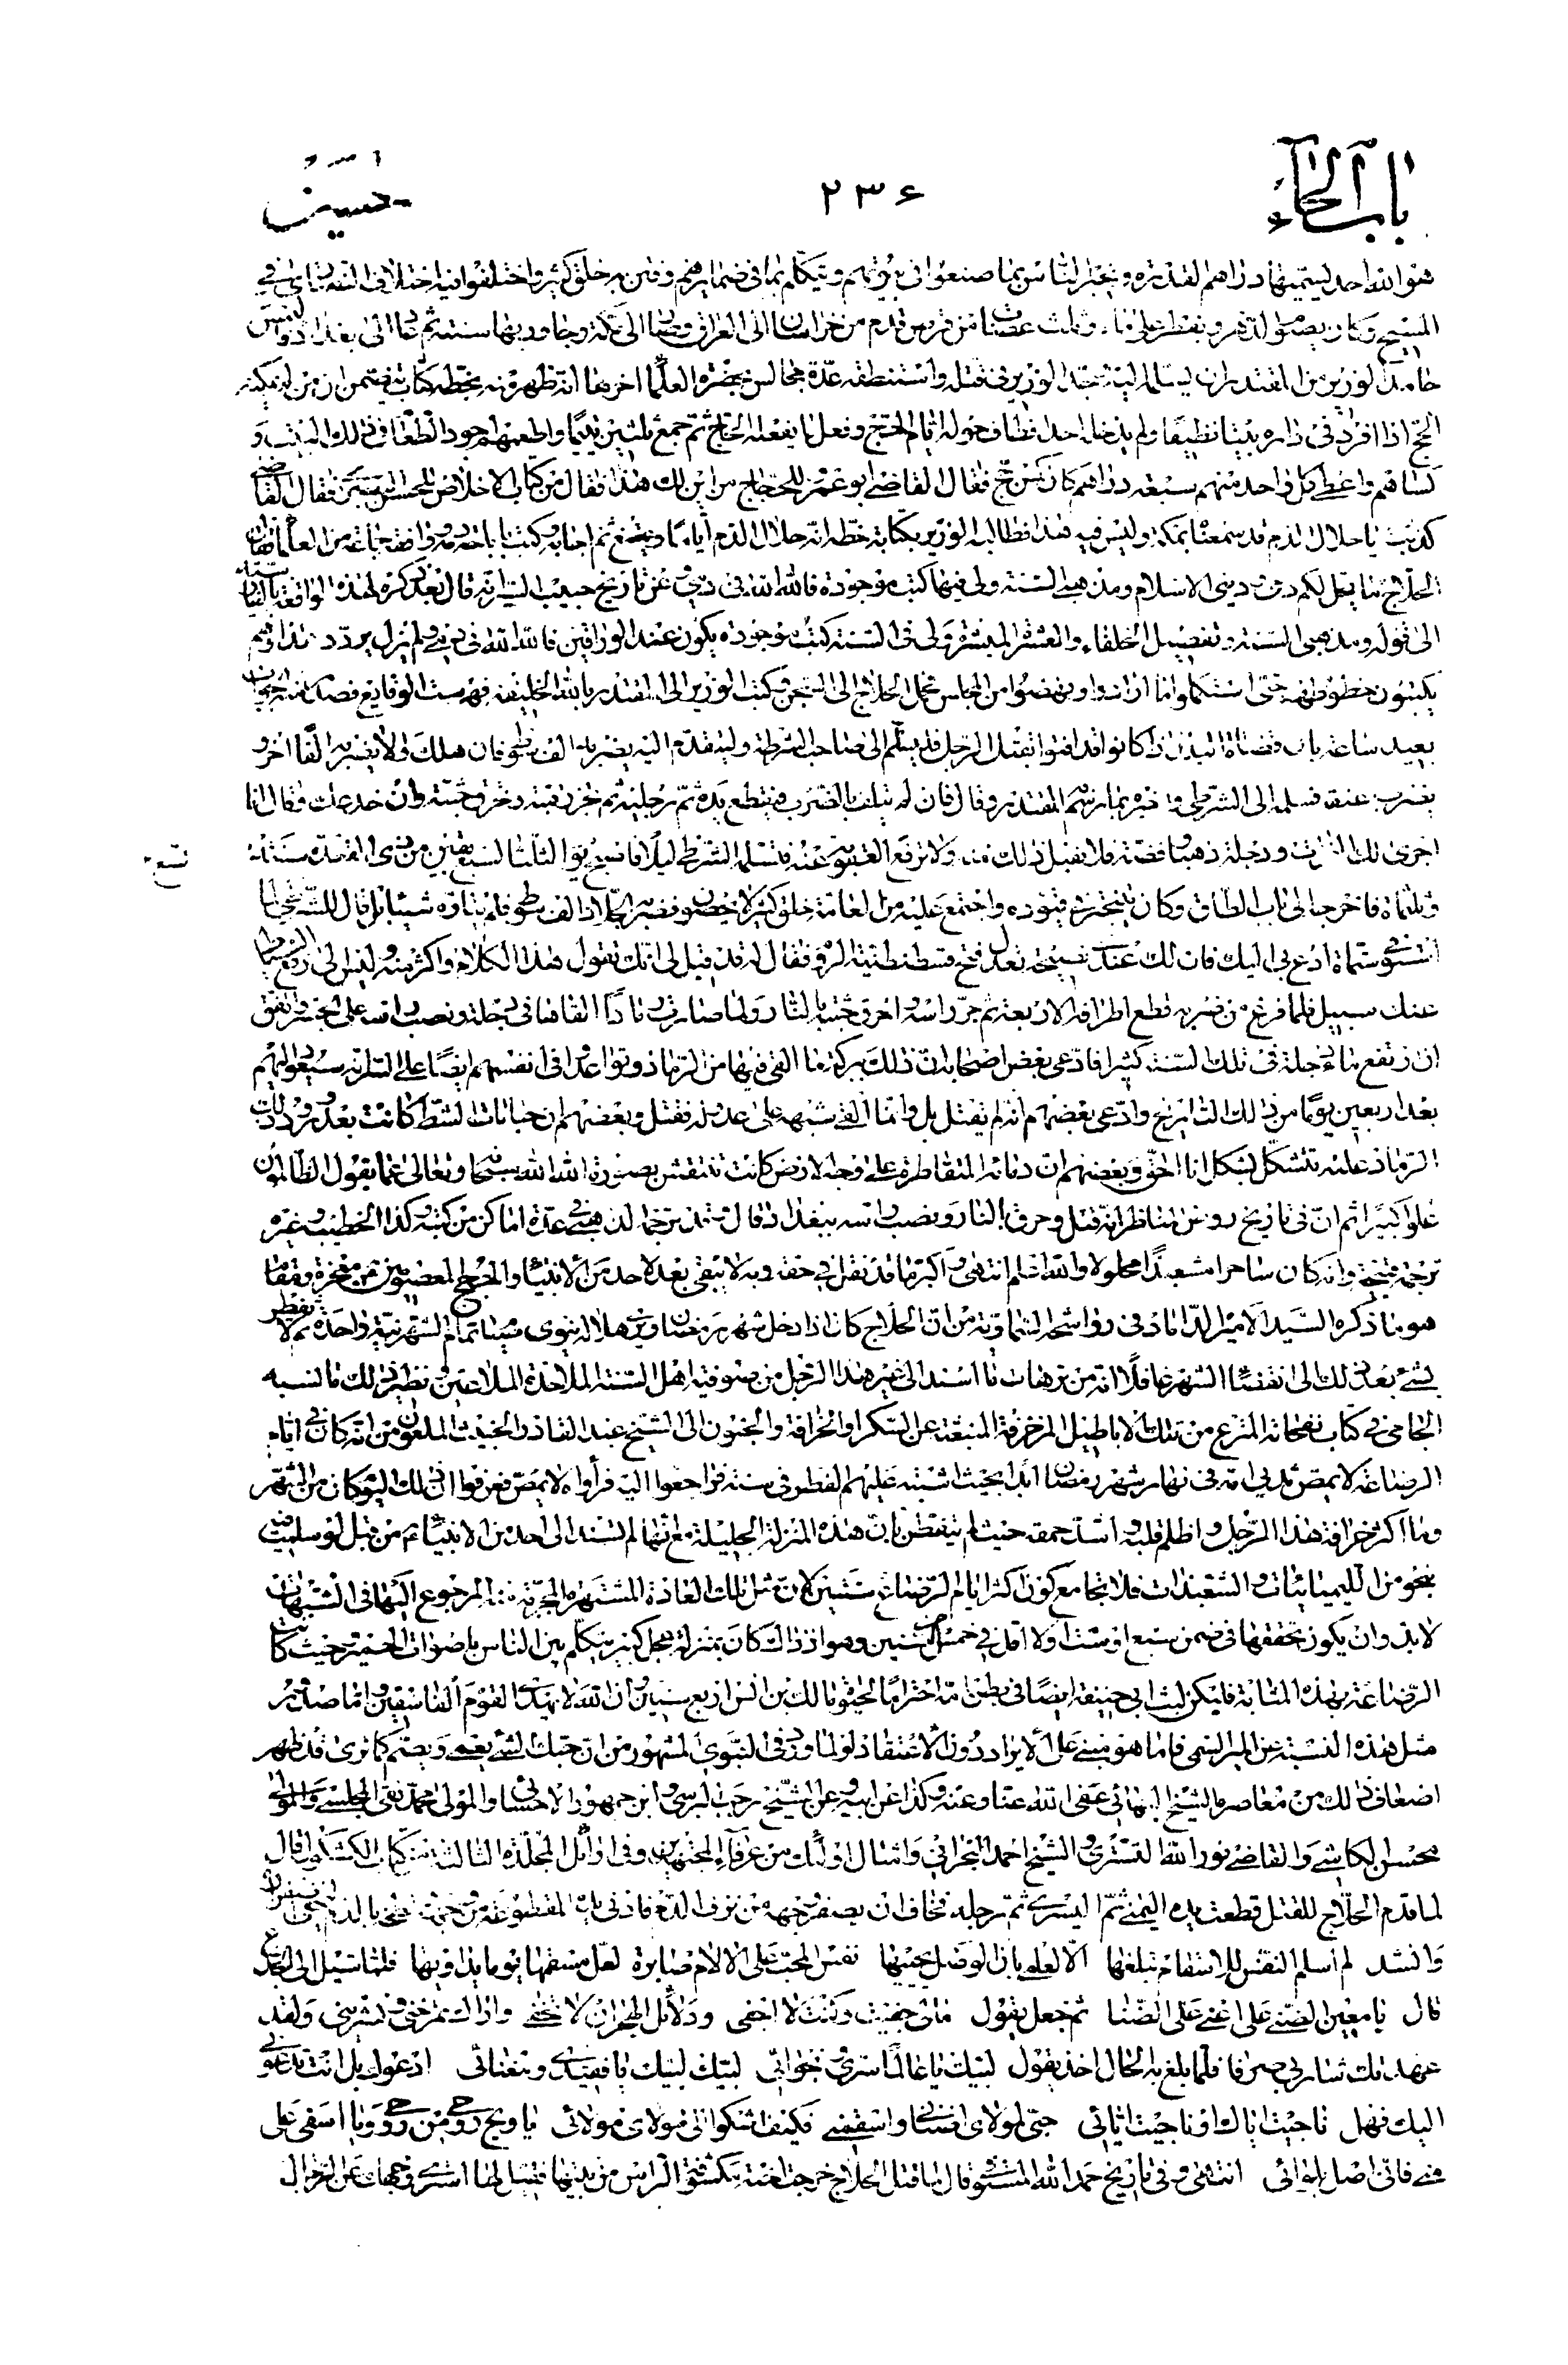 باب الحاء
٢٣۶
حسين
هو الله احد يسميها دراهم القدرة ويخبر الناس بما صنعوا فى بيوتهم ويتكلم بما فى ضمايرهم وفتن به خلق كثير واختلفوا فيه اختلاف النصارى فى
المسيح وكان يصوم الدهر ويفطر على ماء وثلث عضات من قرص قدم من خراسان الى العراق وصار الى مكة وجاور بها سنة ثم عاد الى بغداد فالتمس
حامد الوزير من المقتدر ان يسلمه اليه فجد الوزير فى قتله واستنطقه عدة مجالس بحضرة العلماء اخرها انه ظهر منه بخطه كتاب يتضمن ان من لم يمكنه
الحج اذا افرد فى داره بيتا نظيفا ولم يدخله احد فطاف حوله ايام الحج وفعل ما يفعله الحاج ثم جمع ثلثين يتيما واطعمهم اجود الطعام فى ذلك البيت و
كساهم واعطى كل واحد منهم سبعة دراهم كان كمن حج فقال القاضى ابو عمر للحلاج من اين لك هذا فقال من كتاب الاخلاص للحسن البصرى فقال القاضى
كذبت يا حلال الدم قد سمعناه بمكة وليس فيه هذا فطالبه الوزير بكتابة خطه انه حلال الدم اياما وهو يدافع ثم اجابه وكتب باباحة دمه ووافقه جماعة من العلماء فقال
الحلاج ما يحل لكم دمى ودينى الاسلام ومذهبى السنة ولى فيها كتب موجودة فالله الله فى دمى وعن تاريخ حبيب السير انه قال بعد ذكره لهذه الواقعة
الى قوله ومذهبى السنة وتفضيل الخلفاء والعشرة المبشرة ولى فى السنة كتب موجودة يكون عند الوراقين فالله الله فى دمى ولم يزل يردد هذا وهم
يكتبون خطوطهم حتى استكملوا ما ارادوا ونهضوا من المجلس فحمل الحلاج الى السجن وكتب الوزير الى المقتدر بالله الخليفة فهرست الوقايع
بعيد ساعة بان قضاة البلدان اذ كانوا قد افتوا بقتل الرجل فليسلم الى صاحب الشرطة وليتقدم اليه يضربه الف سوط فان هلك والا يضربه الفا اخر و
يضرب عنقه فسلمه الى الشرطى واخبره بما رسمه المقتدر وقال فان لم يتلف بالضرب فيقطع يده ثم رجليه ثم تحز رقبته وتحرق جثته وان خدعك وقال انا
اجرى لك الفرات ودجلة ذهبا وفضة فلا تقبل ذلك منه ولا ترفع العقوبة عنه فتسلمه الشرطى ليلا فاصبح يوم الثلثا لسبع بقين من ذى القعدة سنة
تسع
وثلثمائة فاخرجه الى باب الطاق وكان يتبختر فى قيوده واجتمع عليه من العامة خلق كثير لا يحصون وضربه الجلاد الف سوط فلم يتاوه شيئا بل قال للشرطى لما
ستماة ادع بى اليك فان لك عندى نصيحة تعدل فتح قسطنطنية الروم فقال له قد قيل لى انك تقول هذا الكلام واكثر منه وليس لى الى رفع السياط
عنك سبيل فلما فرغ من ضربه قطع اطرافه الاربعة ثم جز راسه واحرق جثته بالنار ولما صار رمادا القاها فى دجلة ونصب راسه على الجسر واتفق
ان زتفع ماء دجلة فى تلك السنة كثيرا فادعى بعض اصحابه ان ذلك ببركة ما القى فيها من الرماد وتواعدوا فى انفسهم ايضا على انه سيعود اليهم
بعد اربعين يوما من ذلك التاريخ وادعى بعضهم انه لم يقتل بل وانما القى شبهه على عدو له فقتل وبعضهم ان حبابات الشط كانت بعد ورود ذلك
الرماد عليه تتشكل بشكل انا الحق وبعضهم ان دمائه المتقاطرة على وجه الارض كانت تنتقش بصورة الله الله سبحانه وتعالى عما يقول الظالمون
علوا كبيرا ثم ان فى تاريخ روض المناظر انه قتل وحرق بالنار ونصب راسه ببغداد قال وقد ترجمه الذهبى فى عدة اماكن من كتبه وكذا الخطيب وغيره
ترجمة قبيحة وانه كان ساحرا مشعبذا محلولا والله اعلم انتهى واكبر ما قد نقل فى حقه وبه لا يبقى بعد لاحد من الانبياء والحجج المعصومين من معجزة ومقام
هو ما ذكره السيد الامير الداماد فى رواشحه السماوية من ان الحلاج كان اذا دخل شهر رمضان ورؤى هلاله ينوى صيام تمام الشهر بنية واحدة ثم لا يفطر
بشئ بعد ذلك الى انقضاء الشهر غافلا انه من ترهات ما اسند الى غير هذا الرجل من صوفية اهل السنة الملاحدة الملاعين ونظير ذلك ما نسبه
الجامى فى كتاب نفحاته المترع من تلك الاباطيل المزخرفة المنبعثة عن السكر والخرافة والجنون الى الشيخ عبد القادر الخبيث الملعون من انه كان فى ايام
الرضاعة لا يمص ثدى امه فى نهار شهر رمضان ابدا بحيث اشتبه عليهم الفطر فى سنة فراجعوا اليه فرأوه لا يمص فعرفوا ان ذلك اليوم كان من الشهر
وما اكثر خرافة هذا الرجل واظلم قلبه واشد حمقه حيث لم يتفطن بان هذه المنزلة الجليلة مع انها لم تسند الى احد من الانبياء من قبل لو سلمت منه
بنحو من الليميائيات والشعبذات فلا تجامع كون اكثر ايام الرضاع سنتين لان مثل تلك العادة المشتهرة المجربة المرجوع اليها فى الشبهات
لا بد وان يكون تحققها فى ضمن سبع او ست او لا اقل فى خمس سنين وهو اذ ذاك كان بمنزلة رجل كبير يتكلم بين الناس باصوات الحمير حيث كانت
الرضاعة بهذه المثابة فليكن لبث ابى حنيفة ايضا فى بطن امه احتراما لحيوة مالك بن انس اربع سنين وان الله لا يهدى القوم الفاسقين واما صدور
مثل هذه النسبة عن المير السمى فانما هو مبنى على الايراد دون الاعتقاد او لما ورد فى النبوى المشهور من ان حبك الشئ يعمى ويصم كما ترى قد ظهر
اضعاف ذلك من معاصره الشيخ البهائى عفى الله عنا وعنه وكذا عن ابيه وعن الشيخ رجب البرسى وابن جمهور الاحسائى والمولى محمد تقى المجلسى والمولى
محسن الكاشى والقاضى نور الله التسترى والشيخ احمد البحرانى وامثال اولئك من عرفاء المجتهدين وفى اوائل المجلدة الثالثة من كتاب الكشكول قال
لما قدم الحلاج للقتل قطعت يده اليمنى ثم اليسرى ثم رجله فخاف ان يصفر وجهه من نزف الدم فادنى يده المقطوعة من وجهه فلطخه بالدم
وانشد لم اسلم النفس للاسقام تبلغها الا لعلمى بان الوصل يحييها نفس المحب على الالام صابرة لعل مسقمها يوما يداويها فلما شيل الى الجذع
قال يا معين الضنى على اعنى على الضنا ثم جعل يقول مالى جفيت وكنت لا اجفى ودلائل الهجران لا تخفى واراك تمزجنى وتشربنى ولقد
عهدتك شاربى صرفا فلما بلغ به الحال اخذ يقول لبيك يا عالما سرى ونجوائى لبيك لبيك يا قصدى ومعنائى ادعوك بل انت تدعونى
اليك فهل ناجيت اياك او ناجيت ايائى حبى لمولاى اضنانى واسقمنى فكيف اشكو الى مولاى مولائى يا ويح روحى من روحى ويا اسفى على
منى فانى اصل بلوائى انتهى وفى تاريخ حمد الله المستوفى قال لما قتل الحلاج خرجت اخته مكشوفة الراس من بيتها فقيل لها استرى وجهك عن الرجال